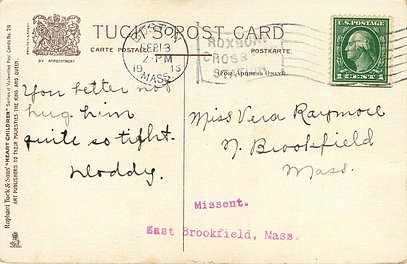 TUCK'S POST CARD
CARTE POSTALE
POSTKARTE.
BY APPOINTMENT
FEB 13
2-PM
19 13
MASS.
ROXBURY
CROSS
(FOR ADDRESS ONLY.)
U.S. POSTAGE
1 CENT 1
You better not
hug him
quite so tight.
Doddy.
Miss Vera Raymore
N. Brookfield
Mass.
Missent.
East Brookfield, Mass.
Raphael Tuck & Sons' "HEART CHILDREN" Series of Valentine Post Cards No. 29
ART PUBLISHERS TO THEIR MAJESTIES THE KING AND QUEEN.